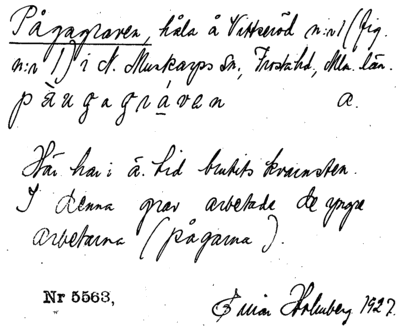 Pågagraven, håla å Vittseröd n:r 1 (fig.
n:r 1) i N. Munkarps Sn., Frosta hd, Mlm. län.
pàugagráven a.
Här har i ä. tid brutits kvarnsten.
I denna grav arbetade de yngre
arbetarna (pågarna).
Nr 5563,
Holmberg 1927.